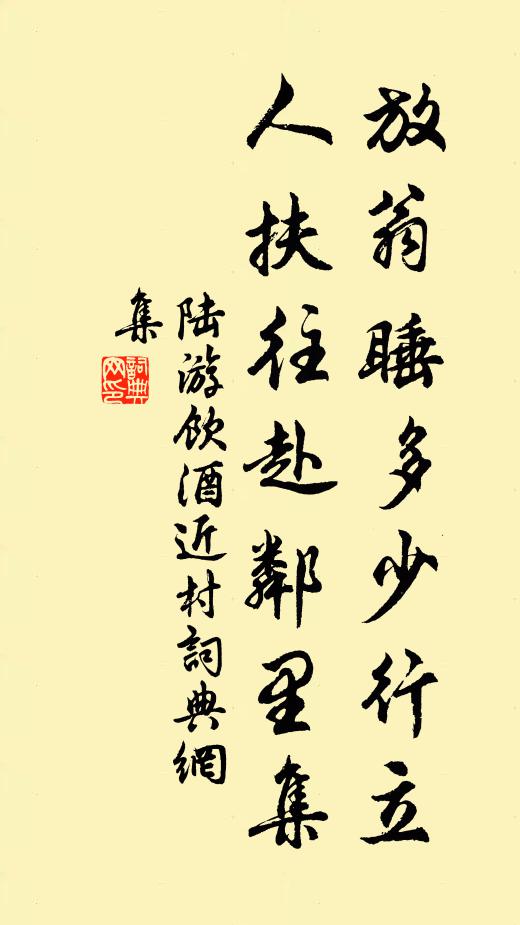 放翁睡多少行立
人扶往赴鄰里集
陆游饮酒近村詞典網
集
詞典
网印